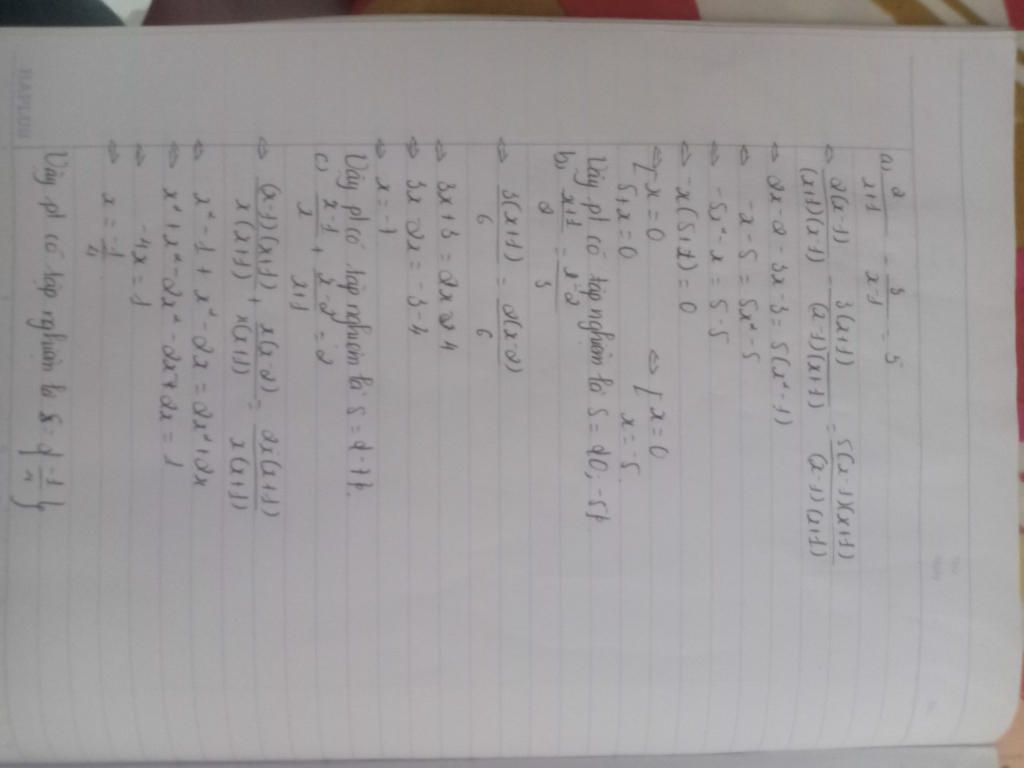 a, 2/(x+1) - 3/(x-1) = 5
⇔ 2(x-1)/((x+1)(x-1)) - 3(x+1)/((x-1)(x+1)) = 5(x-1)(x+1)/((x-1)(x+1))
⇔ 2x-2-3x-3 = 5(x²-1)
⇔ -x-5 = 5x²-5
⇔ -5x²-x = 5-5
⇔ -x(5+x) = 0
⇔ [ -x = 0 ⇔ [ x = 0
5+x = 0 x = -5
Vậy pt có tập nghiệm là S = {0; -5}
b, (x+1)/2 = (x-2)/3
⇔ 3(x+1)/6 = 2(x-2)/6
⇔ 3x+3 = 2x-4
⇔ 3x-2x = -3-4
⇔ x = -7
Vậy pt có tập nghiệm là S = {-7}.
c) (x-1)/x + (x-2)/(x+1) = 2
⇔ (x-1)(x+1)/(x(x+1)) + x(x-2)/(x(x+1)) = 2x(x+1)/(x(x+1))
⇔ x²-1+x²-2x = 2x²+2x
⇔ x²+x²-2x²-2x+2x = 1
⇔ -4x = 1
⇔ x = -1/4
Vậy pt có tập nghiệm là S = {-1/4}